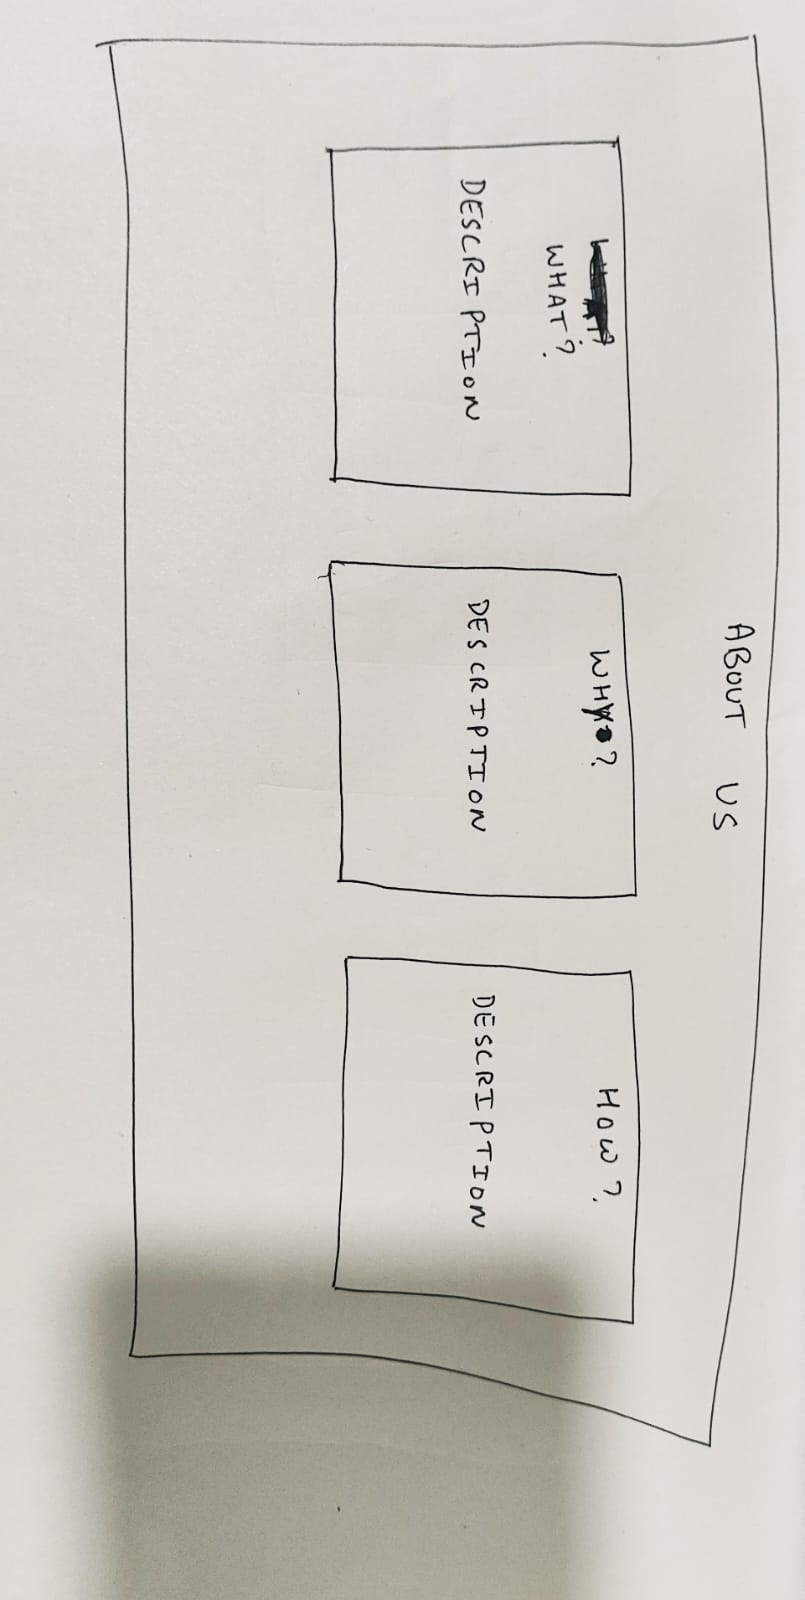 ABOUT US
WHAT?
DESCRIPTION
WHY?
DESCRIPTION
HOW?
DESCRIPTION